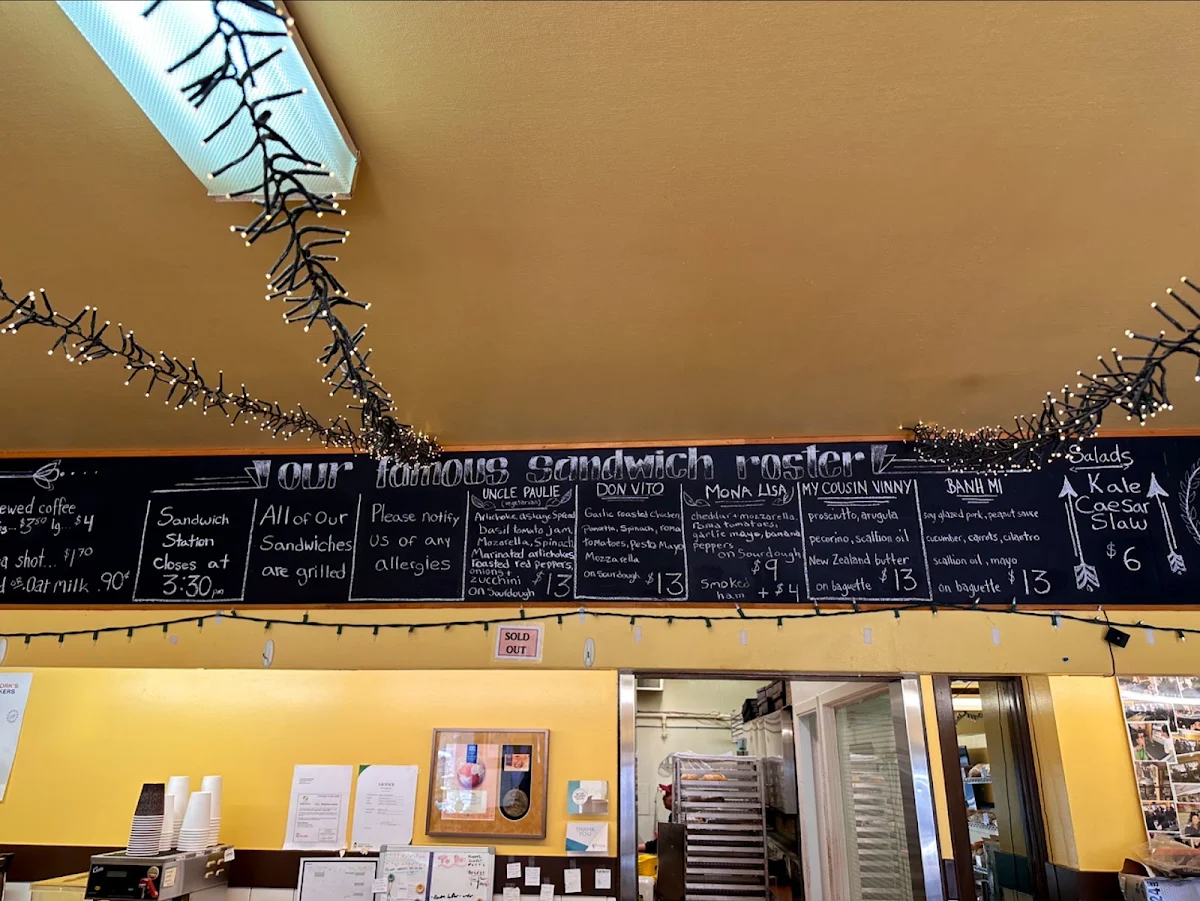 our famous sandwich roster
ewed coffee
lg... $4
a shot... $1.70
Oat milk .90¢
Sandwich
Station
closes at
3:30pm
All of Our
Sandwiches
are grilled
Please notify
us of any
allergies
UNCLE PAULIE
(vegetarian)
Artichoke asiago Spread
basil tomato jam,
Mozarella, Spinach
Marinated artichokes
roasted red peppers,
onions +
zucchini
on Sourdough $13
DON VITO
Garlic roasted chicken
Pancetta, Spinach, roma
tomatoes, Pesto Mayo
Mozzarella
on sourdough $13
MONA LISA
cheddar + mozzarella,
roma tomatoes,
garlic mayo, banana
peppers
on Sourdough
$9
Smoked
ham + $4
MY COUSIN VINNY
prosciutto, arugula
pecorino, scallion oil
New Zealand butter
on baguette $13
BANH MI
soy glazed pork, peanut sauce
cucumber, carrots, cilantro
scallion oil, mayo
on baguette $13
Salads
Kale
Caesar
Slaw
$6
SOLD
OUT
THANK
YOU
To Do: